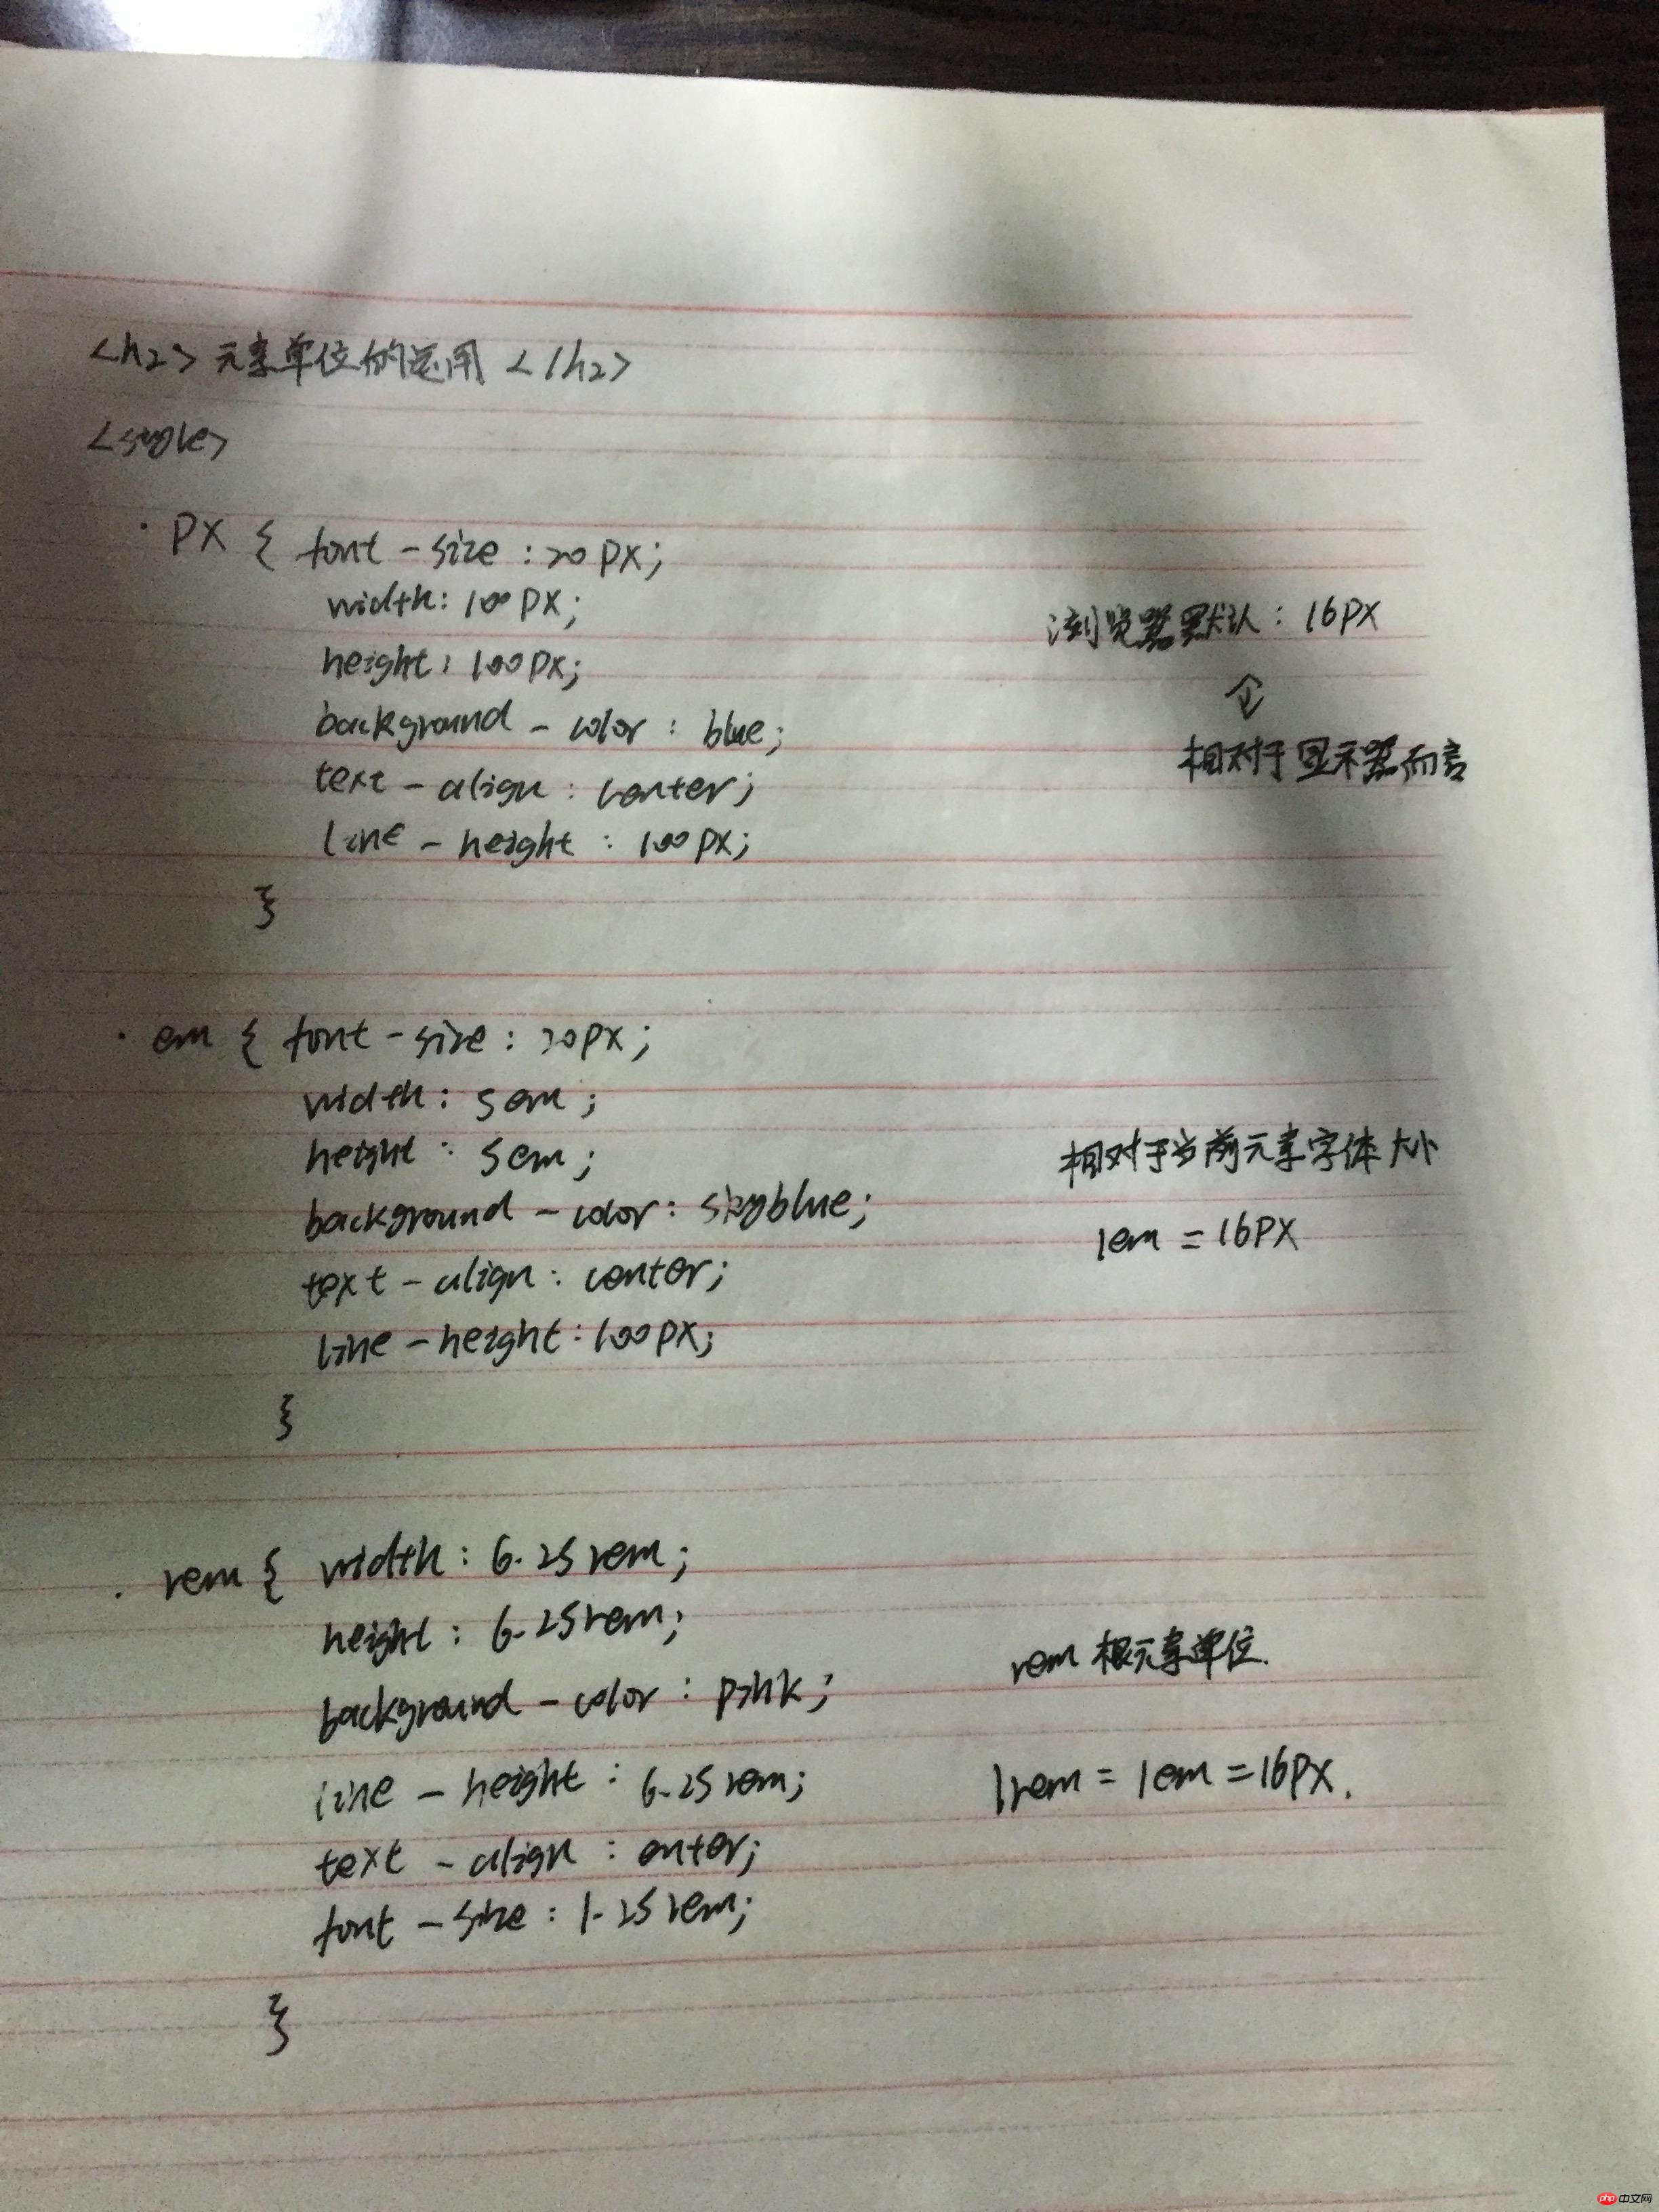 <h2> 元素单位的运用 </h2>
<style>
.px { font-size : 20px;
width: 100px;
浏览器默认: 16px
height: 100px;
background-color : blue;
相对于显示器而言
text-align : center;
line-height : 100px;
}
.em { font-size : 20px;
width: 5em;
height: 5em;
相对于当前元素字体大小
background-color : skyblue;
1em = 16px
text-align : center;
line-height : 100px;
}
.rem { width : 6.25rem;
height : 6.25rem;
rem 根元素单位.
background-color : pink;
line-height : 6.25rem;
1rem = 1em = 16px.
text-align : enter;
font-size : 1.25rem;
}
php 中文网